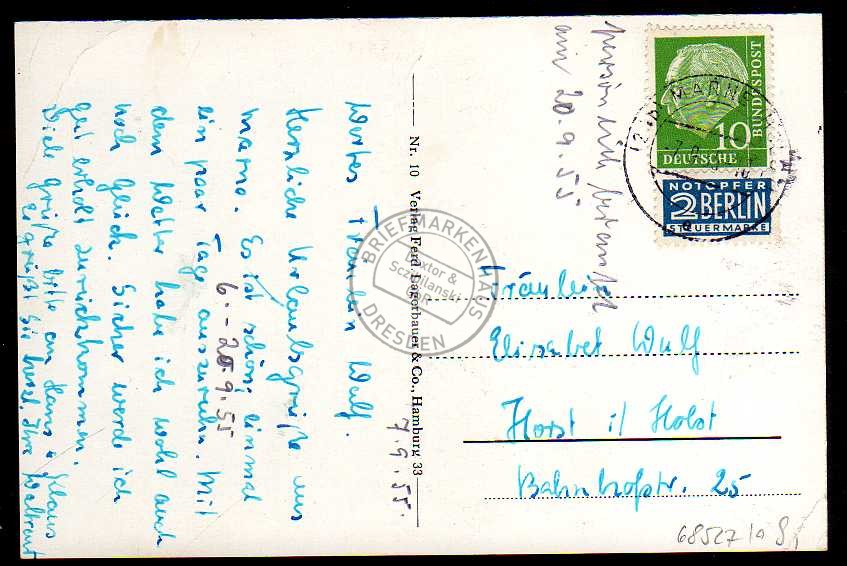 7.9.55.
Wertes Fräulein Wulf.
Herzliche Urlaubsgrüße aus
Marne. Es ist schön, einmal
ein paar Tage auszuruhn. Mit
6. - 20.9.55
dem Wetter habe ich wohl auch
noch Glück. Sicher werde ich
gut erholt zurückkommen.
Viele Grüße bitte an Hans u. Klaus
Es grüßt Sie herzl. Ihre Waltraut
Nr. 10 Verlag Ferd. Lagerbauer & Co., Hamburg 33
persönlich
am 20.9.55
10
DEUTSCHE
BUNDESPOST
NOTOPFER
2 BERLIN
STEUERMARKE
MARNE
Fräulein
Elisabet Wulf
Horst i/ Holst
Bahnhofstr. 25
68527
BRIEFMARKENHAUS
DRESDEN